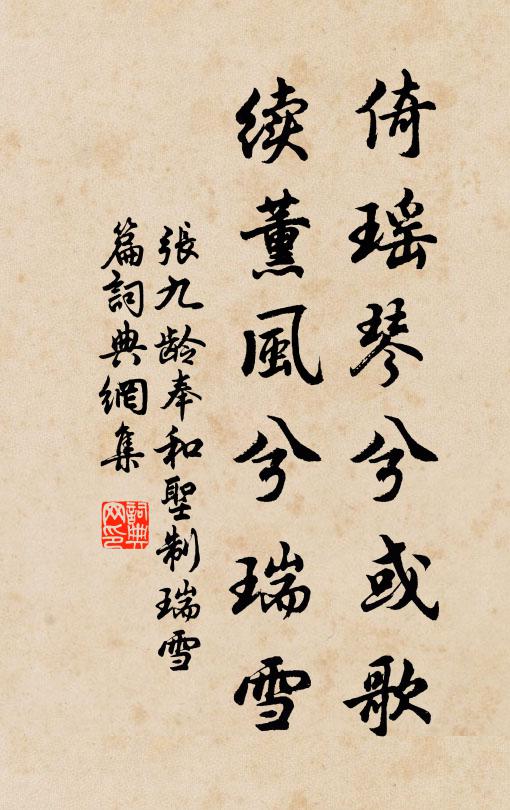 倚瑶琴兮或歌
续薰風兮瑞雪
張九龄奉和聖制瑞雪
篇詞典網集
詞典
网印